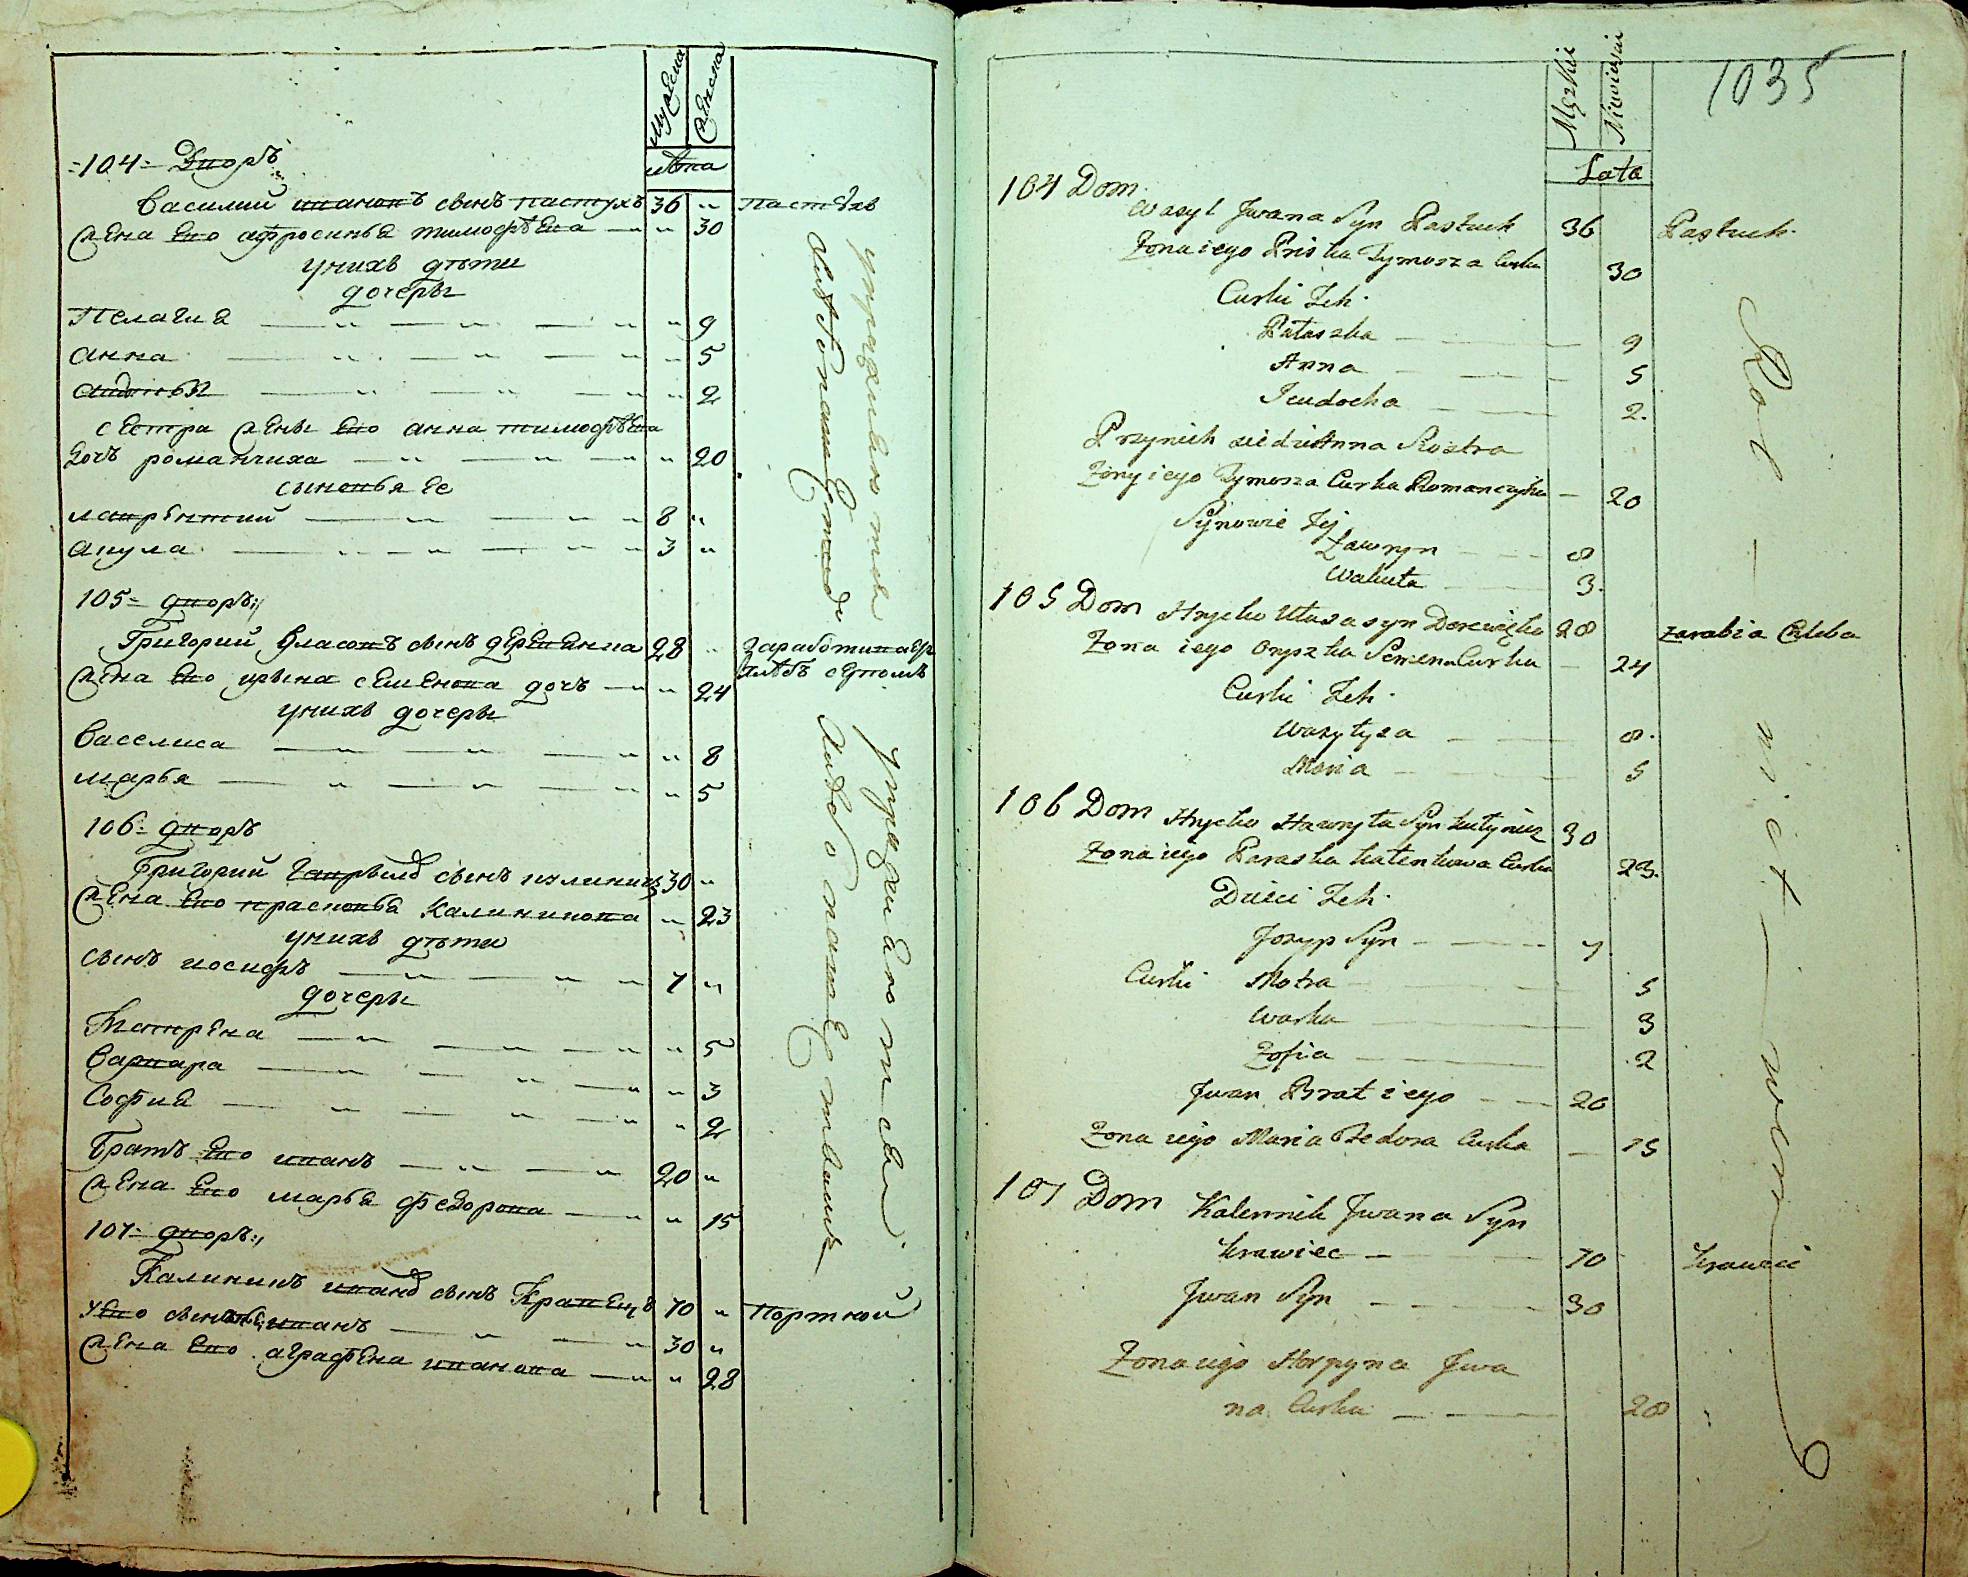 Мужеска
женска
лѣта
=104= Дворъ
Василий ивановъ сынъ пастухъ 36 " Пастухъ
жена его афросинья тимофѣева — " " 30
у нихъ дѣти
дочеры
Пелагия — " — " — " " 9
анна — " — " — " " 5
авдотья — " — " — " " 2
сестра жены его анна тимофѣева
дочъ романчиха — " — " — " " 20
сыновья ее
лаврентий — " — " — " 8 "
акула — " — " — " 3 "
105= дворъ
Григорий Власовъ сынъ деревянка 28 " Заработиваетъ
хлѣбъ
жена его ирына семенова дочъ — " " 24
у нихъ дочеры
Василиса — " — " — " " 8
марья — " — " — " " 5
106= дворъ
Григорий гаврыловъ сынъ 30 "
жена его прасковья Калининова " 23
у нихъ дѣти
сынъ иосифъ — " — " — " 7 "
дочеры
Матрена — " — " — " " 5
Варвара — " — " — " " 3
София — " — " — " " 2
братъ его иванъ — " — " 20 "
жена его марья федорова — " " 15
107= дворъ
Калининъ ивановъ сынъ Кравецъ 70 " Портной
у его сынъ иванъ — " — " 30 "
жена его аграфена иванова — " " 28
упражняются
хлебопашествомъ
упражняются
хлебопашествомъ
1035
Męzkii
Niewieskii
Lata
104 Dom
Wasyl Jwana Syn Pastuch 36 Pastuch
Zona iego Priska Tymosza Curka 30
Curki Ich
Pałaszka — — 9
Anna — — 5
Jeudocha — — 2.
Przynich siedzi Anna Siostra
Zony iego Tymosza Curka Romanczycha — 20
Synowie Jej
Ławryn — — 8
Wakuła — 3.
105 Dom Hryćko Własa syn Derewięko 28 Zarabia Chleba
Zona iego Oryszka Semena Curka — 24
Curki Ich
Wasyłysa — — 8.
Maria — — 5
106 Dom Hryćko Hawryła Syn 30
Zona iego Paraska Kalenkowa Curka 23.
Dzieci Ich
Jozyp Syn — — 7
Curki Motra — — 5
Warka — — 3
Zofia — — 2
Jwan Brat iego — — 20
Zona iego Maria Fedora Curka — 15
107 Dom Kalennik Jwana Syn
Krawiec — — 70 Krawiec
Jwan Syn — — 30
Zona iego Horpyna Jwa
na Curka — — 28
Rol — nict — wem